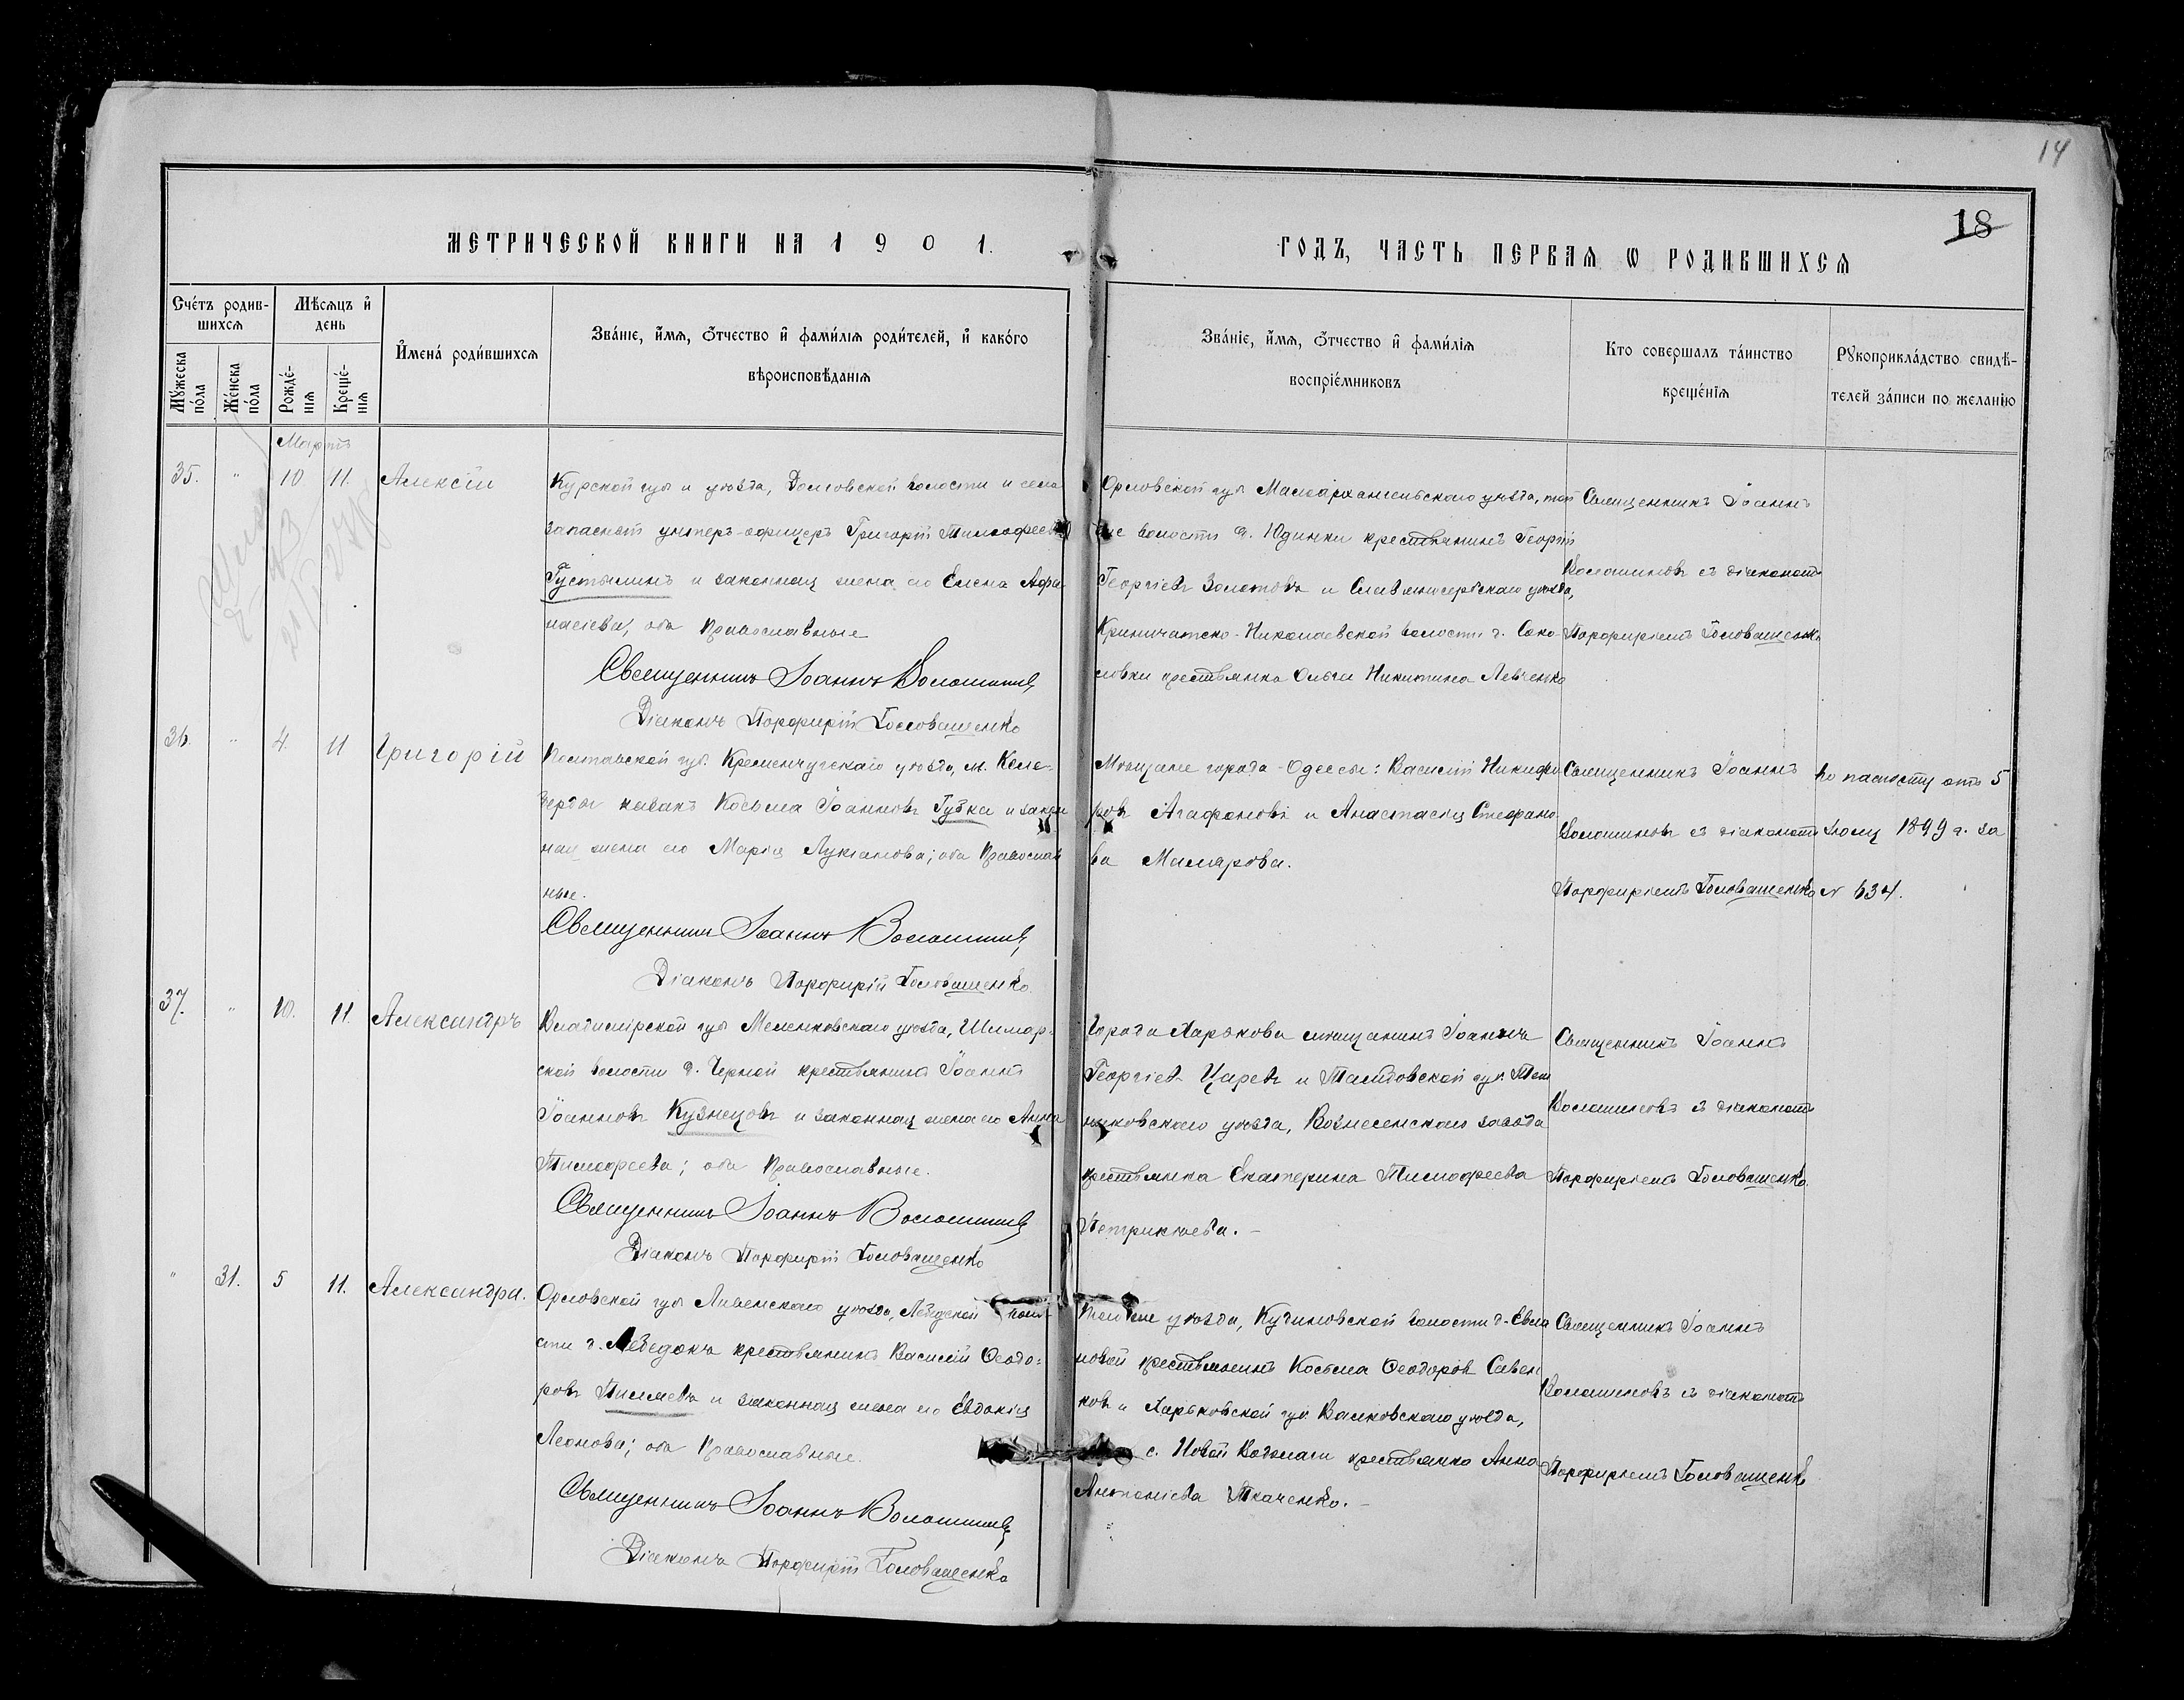 14
18
МЕТРИЧЕСКОЙ КНИГИ НА 1901.
ГОДЪ, ЧАСТЬ ПЕРВАЯ Ѡ РОДИВШИХСѦ
Счéтъ родив-
шихсѧ
Мѣсѧцъ и҆
день
Мꙋ́жеска
по́ла
Же́нска
по́ла
Рожде́-
нїѧ
Креще́-
нїѧ
И҆мена́ роди́вшихсѧ
Зва́нїе, и҆́мѧ, ѻ҆́тчество и҆ фами́лїѧ роди́телей, и҆ како́гѡ
вѣроисповѣ́данїѧ
Зва́нїе, и҆́мѧ, ѻ҆́тчество и҆ фами́лїѧ
воспрїе́мниковъ
Кто совершалъ та́инство
креще́нїѧ
Рꙋкоприкла́дство свидѣ́-
телей за́писи по жела́нїю
Мартъ
35. " 10 11. Алексій
Курской губ и уѣзда, Долговской волости и села
запасной унтеръ-офицеръ Григорій Тимофеевъ
Густылинъ и законная жена его Елена Афа
насіева, оба православные
Священникъ Іоаннъ Волошиновъ
Діаконъ Порфирій Головашенко
Орловской губ Малоархангельскаго уѣзда, той
же волости д. Юдинки крестьянинъ Георгій
Георгіевъ Золотовъ и Славяносербскаго уѣзда,
Криничанско-Николаевской волости д. Соко-
ловки крестьянка Ольга Никитина Левченко
Священникъ Іоаннъ
Волошиновъ съ діакономъ
Порфиріемъ Головашенко
36. " 4. 11 Григорій
Полтавской губ. Кременчугскаго уѣзда, м. Келе-
берды казакъ Косьма Іоанновъ Губка и закон
ная жена его Марія Лукіанова; оба Православ
ные.
Священникъ Іоаннъ Волошиновъ
Діаконъ Порфирій Головашенко
Мѣщане города Одессы: Василій Никифо
ровъ Агафоновъ и Анастасія Стефано
ва Малярова.
Священникъ Іоаннъ
Волошиновъ съ діакономъ
Порфиріемъ Головашенко
по паспорту отъ 5
Іюля 1899 г. за
№ 634.
37. " 10. 11. Александръ
Владимірской губ Меленковскаго уѣзда, Шимор-
ской волости д. Черной крестьянинъ Іоаннъ
Іоанновъ Кузнецовъ и законная жена его Анна
Тимофеева; оба Православные.
Священникъ Іоаннъ Волошиновъ
Діаконъ Порфирій Головашенко
Города Харькова мѣщанинъ Іоаннъ
Георгіевъ Царевъ и Тамбовской губ. Тем
никовскаго уѣзда, Вознесенскаго завода
крестьянка Екатерина Тимофеева
Петрикеева. –
Священникъ Іоаннъ
Волошиновъ съ діакономъ
Порфиріемъ Головашенко.
" 31. 5 11. Александра.
Орловской губ Ливенскаго уѣзда, воло-
сти д. крестьянинъ Василій Ѳеодо-
ровъ и законная жена его Евдокія
Леонова; оба Православные.
Священникъ Іоаннъ Волошиновъ
Діаконъ Порфирій Головашенко
Того же уѣзда, волости д. Евла
новой крестьянинъ Косьма Ѳеодоровъ Савен
ковъ и Харьковской губ. Валковскаго уѣзда,
с. Новой Водолаги крестьянка Анна
Антоніева Ткаченко. –
Священникъ Іоаннъ
Волошиновъ съ діакономъ
Порфиріемъ Головашенко